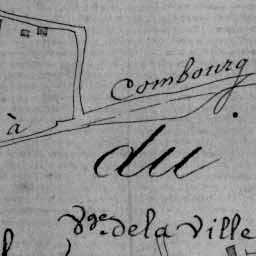 Combourg
à
du
Vge. de la Ville